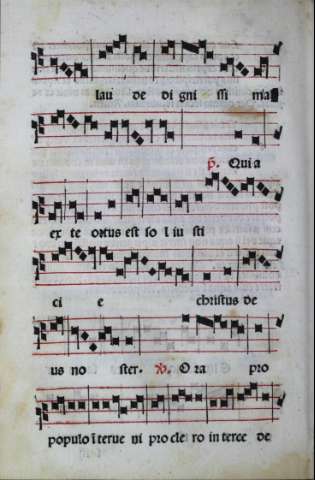 lau de di gni ssi ma
p. Qui a
ex te ortus est so l iu sti
ci e christus de
us no ster. V. O ra pro
populo īterue ni pro cle ro in terce de